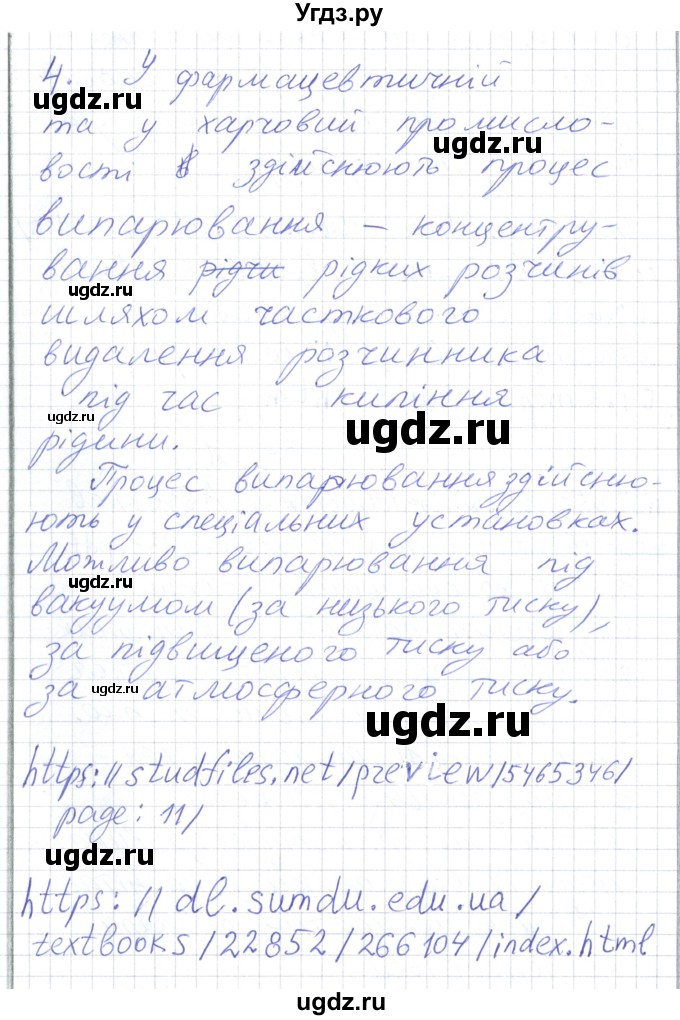 Угдз.ру
4. У фармацевтичній
ugdz.ru
та у харчовий промисло-
ugdz.ru
вості здійснюють процес
випарювання – концентру-
вання рідки рідких розчинів
ugdz.ru
шляхом часткового
видалення розчинника
під час кипіння
ugdz.ru
ugdz.ru
рідини.
Процес випарювання здійсню-
ugdz.ru
ють у спеціальних установках.
Можливо випарювання під
ugdz.ru
вакуумом (за низького тиску),
за підвищеного тиску або
за атмосферного тиску.
ugdz.ru
ugdz.ru
https://studfiles.net/preview/5465346/
page:11/
ugdz.ru
ugdz.ru
https://dl.sumdu.edu.ua/
textbooks/22852/266104/index.html
ugdz.ru